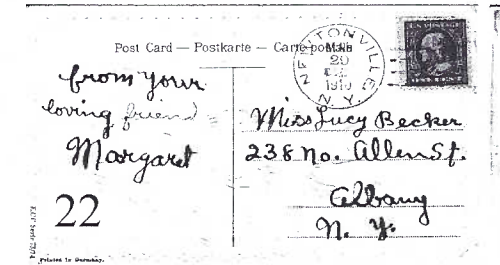 Post Card — Postkarte — Carte postale
NEWTONVILLE
MAR
20
1910
N. Y.
from your
loving friend
Margaret
Miss Lucy Becker
238 No. Allen St.
Albany
N. Y.
22
Printed in Germany.